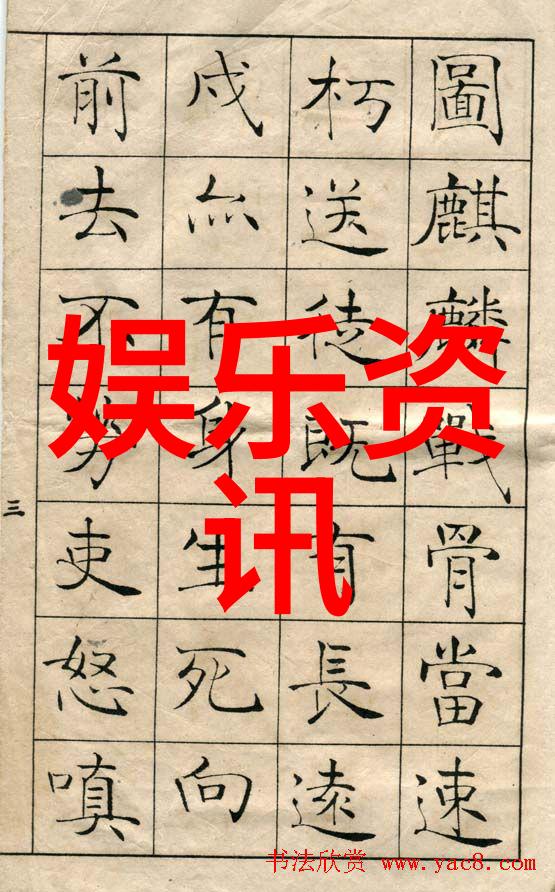 圖麒麟戰骨當速
朽送徒既有長遠
戍亦有身生死向
前去不勞吏怒嗔
三
娱乐资
讯
书法欣赏 www.yac8.com